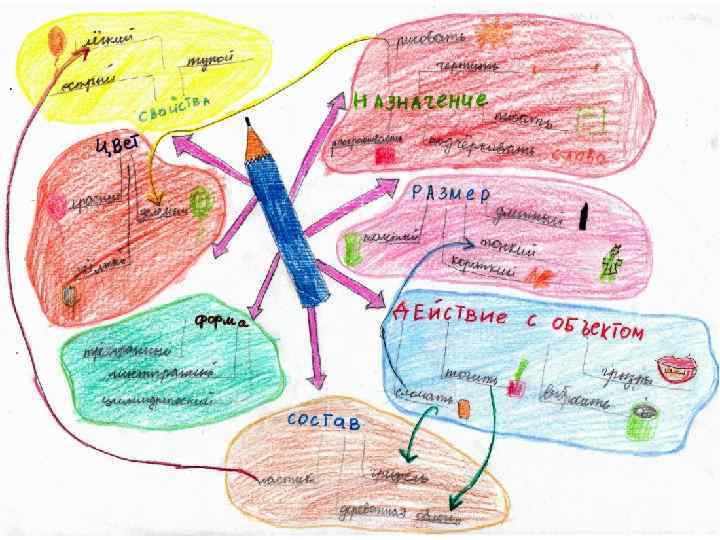 лёгкий
тупой
острый
СВОЙСТВА
рисовать
чертить
НАЗНАЧЕНИЕ
писать
раскрашивать
подчёркивать
слово
ЦВЕТ
красный
зелёный
РАЗМЕР
длинный
тонкий
короткий
форма
трёхгранный
цилиндрический
ДЕЙСТВИЕ С ОБЪЕКТОМ
точить
грызть
сломать
выбросить
СОСТАВ
ластик
грифель
деревянная